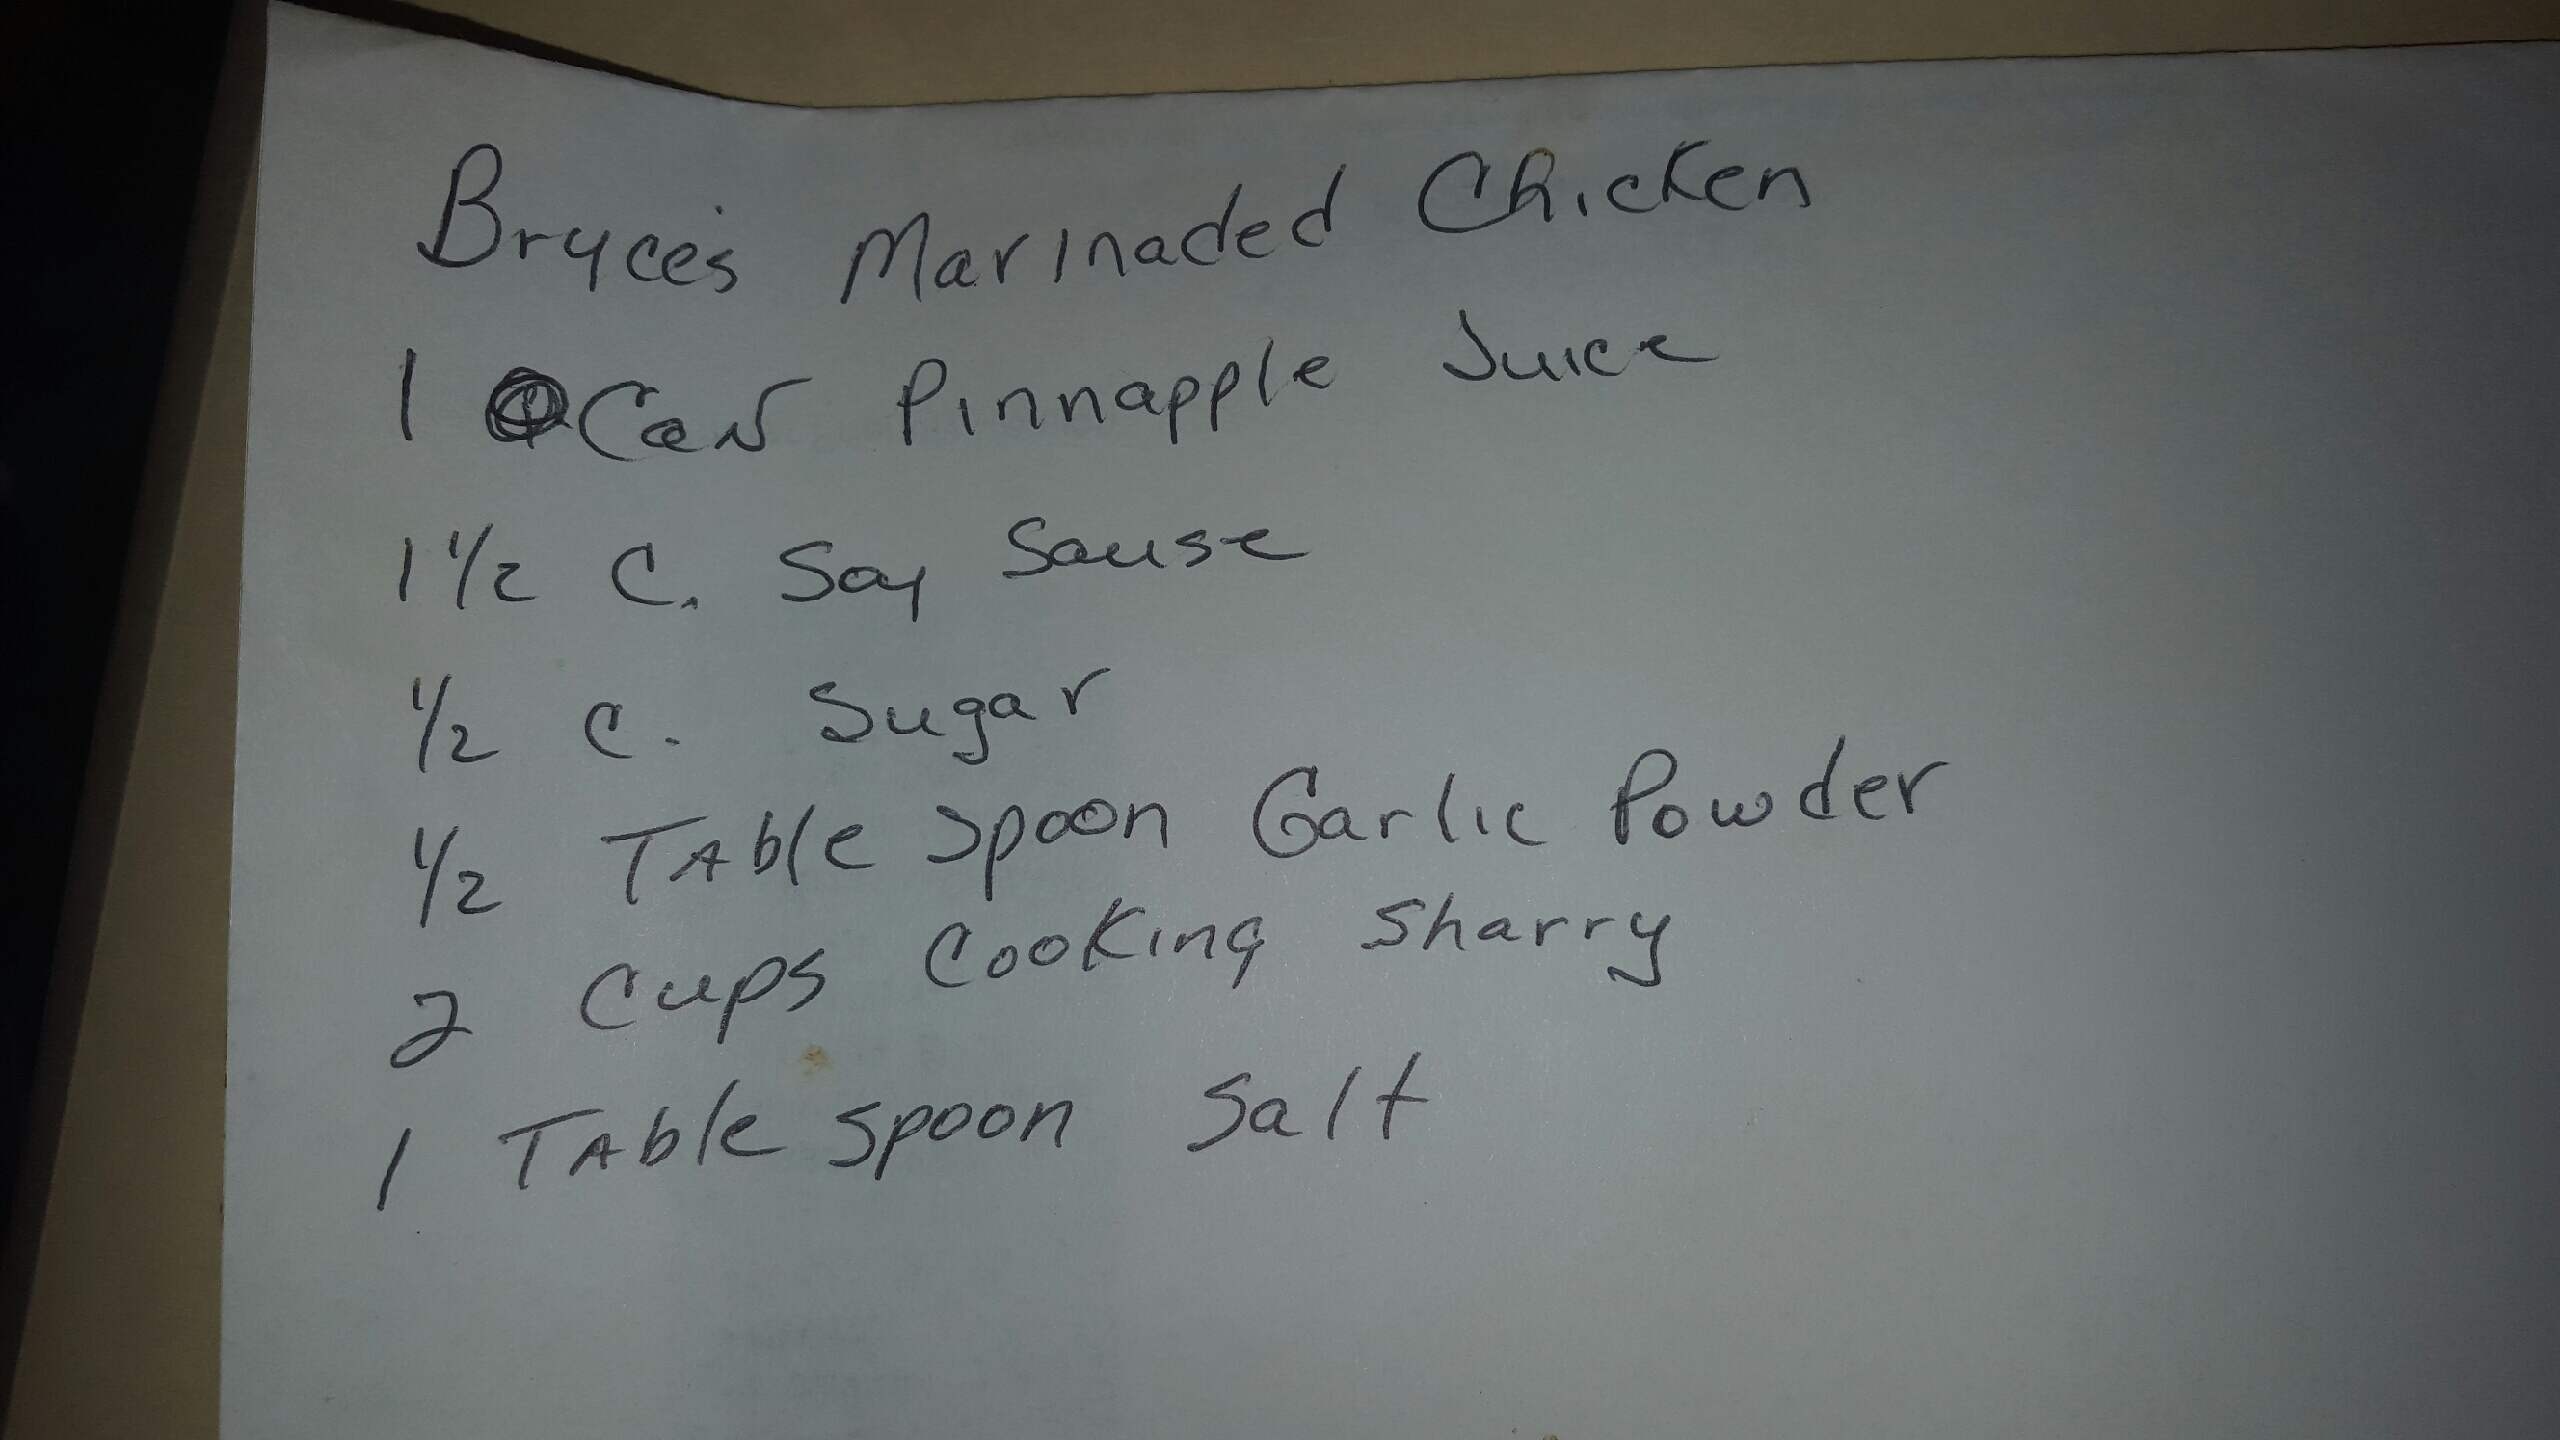 Bryce's Marinaded Chicken
1 Can Pinnapple Juice
1 1/2 C. Soy Sause
1/2 C. Sugar
1/2 TAble spoon Garlic Powder
2 Cups Cooking Sharry
1 TAble spoon Salt